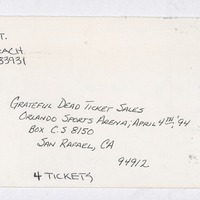 T.
33931
GRATEFUL DEAD TICKET SALES
ORLANDO SPORTS ARENA; APRIL 4TH, '94
BOX C.S 8150
SAN RAFAEL, CA
94912
4 TICKETS